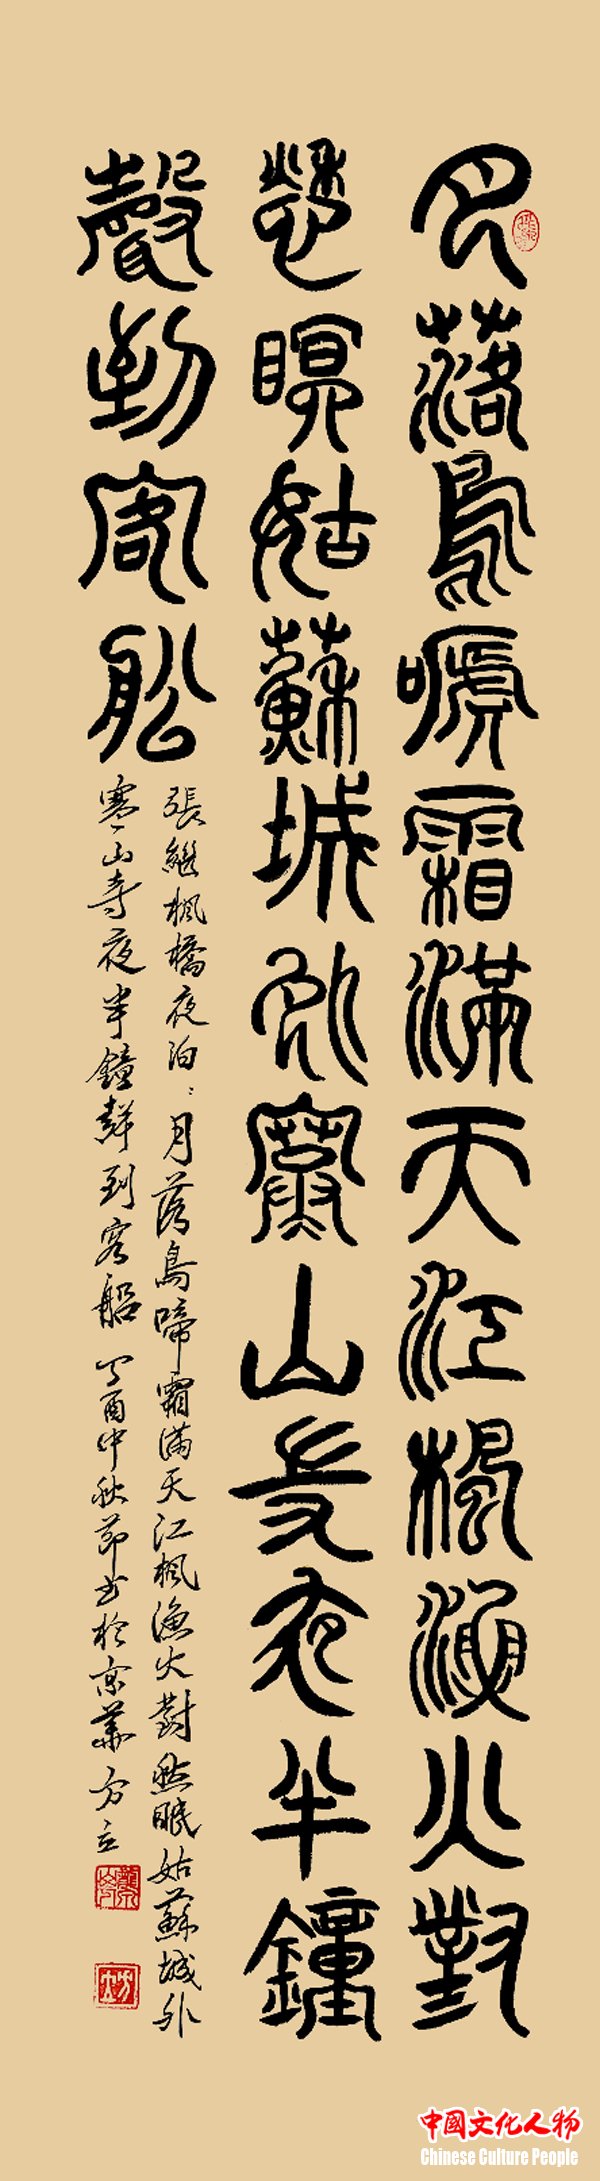 月落烏嗁霜滿天江楓漁火對
愁瞑姑蘇城外寒山寺夜半鐘
聲到客船
張繼楓橋夜泊：月落烏啼霜滿天江楓漁火對愁眠姑蘇城外
寒山寺夜半鐘聲到客船 丁酉中秋節书於京華方立
中國文化人物
Chinese Culture People